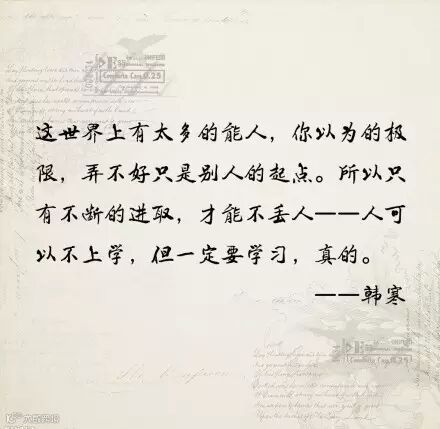 这世界上有太多的能人，你以为的极
限，弄不好只是别人的起点。所以只
有不断的进取，才能不丢人——人可
以不上学，但一定要学习，真的。
——韩寒